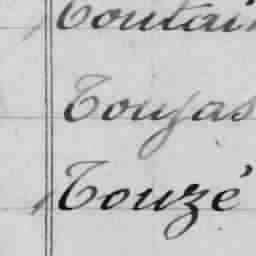 Toutain
Toujas
Touzé